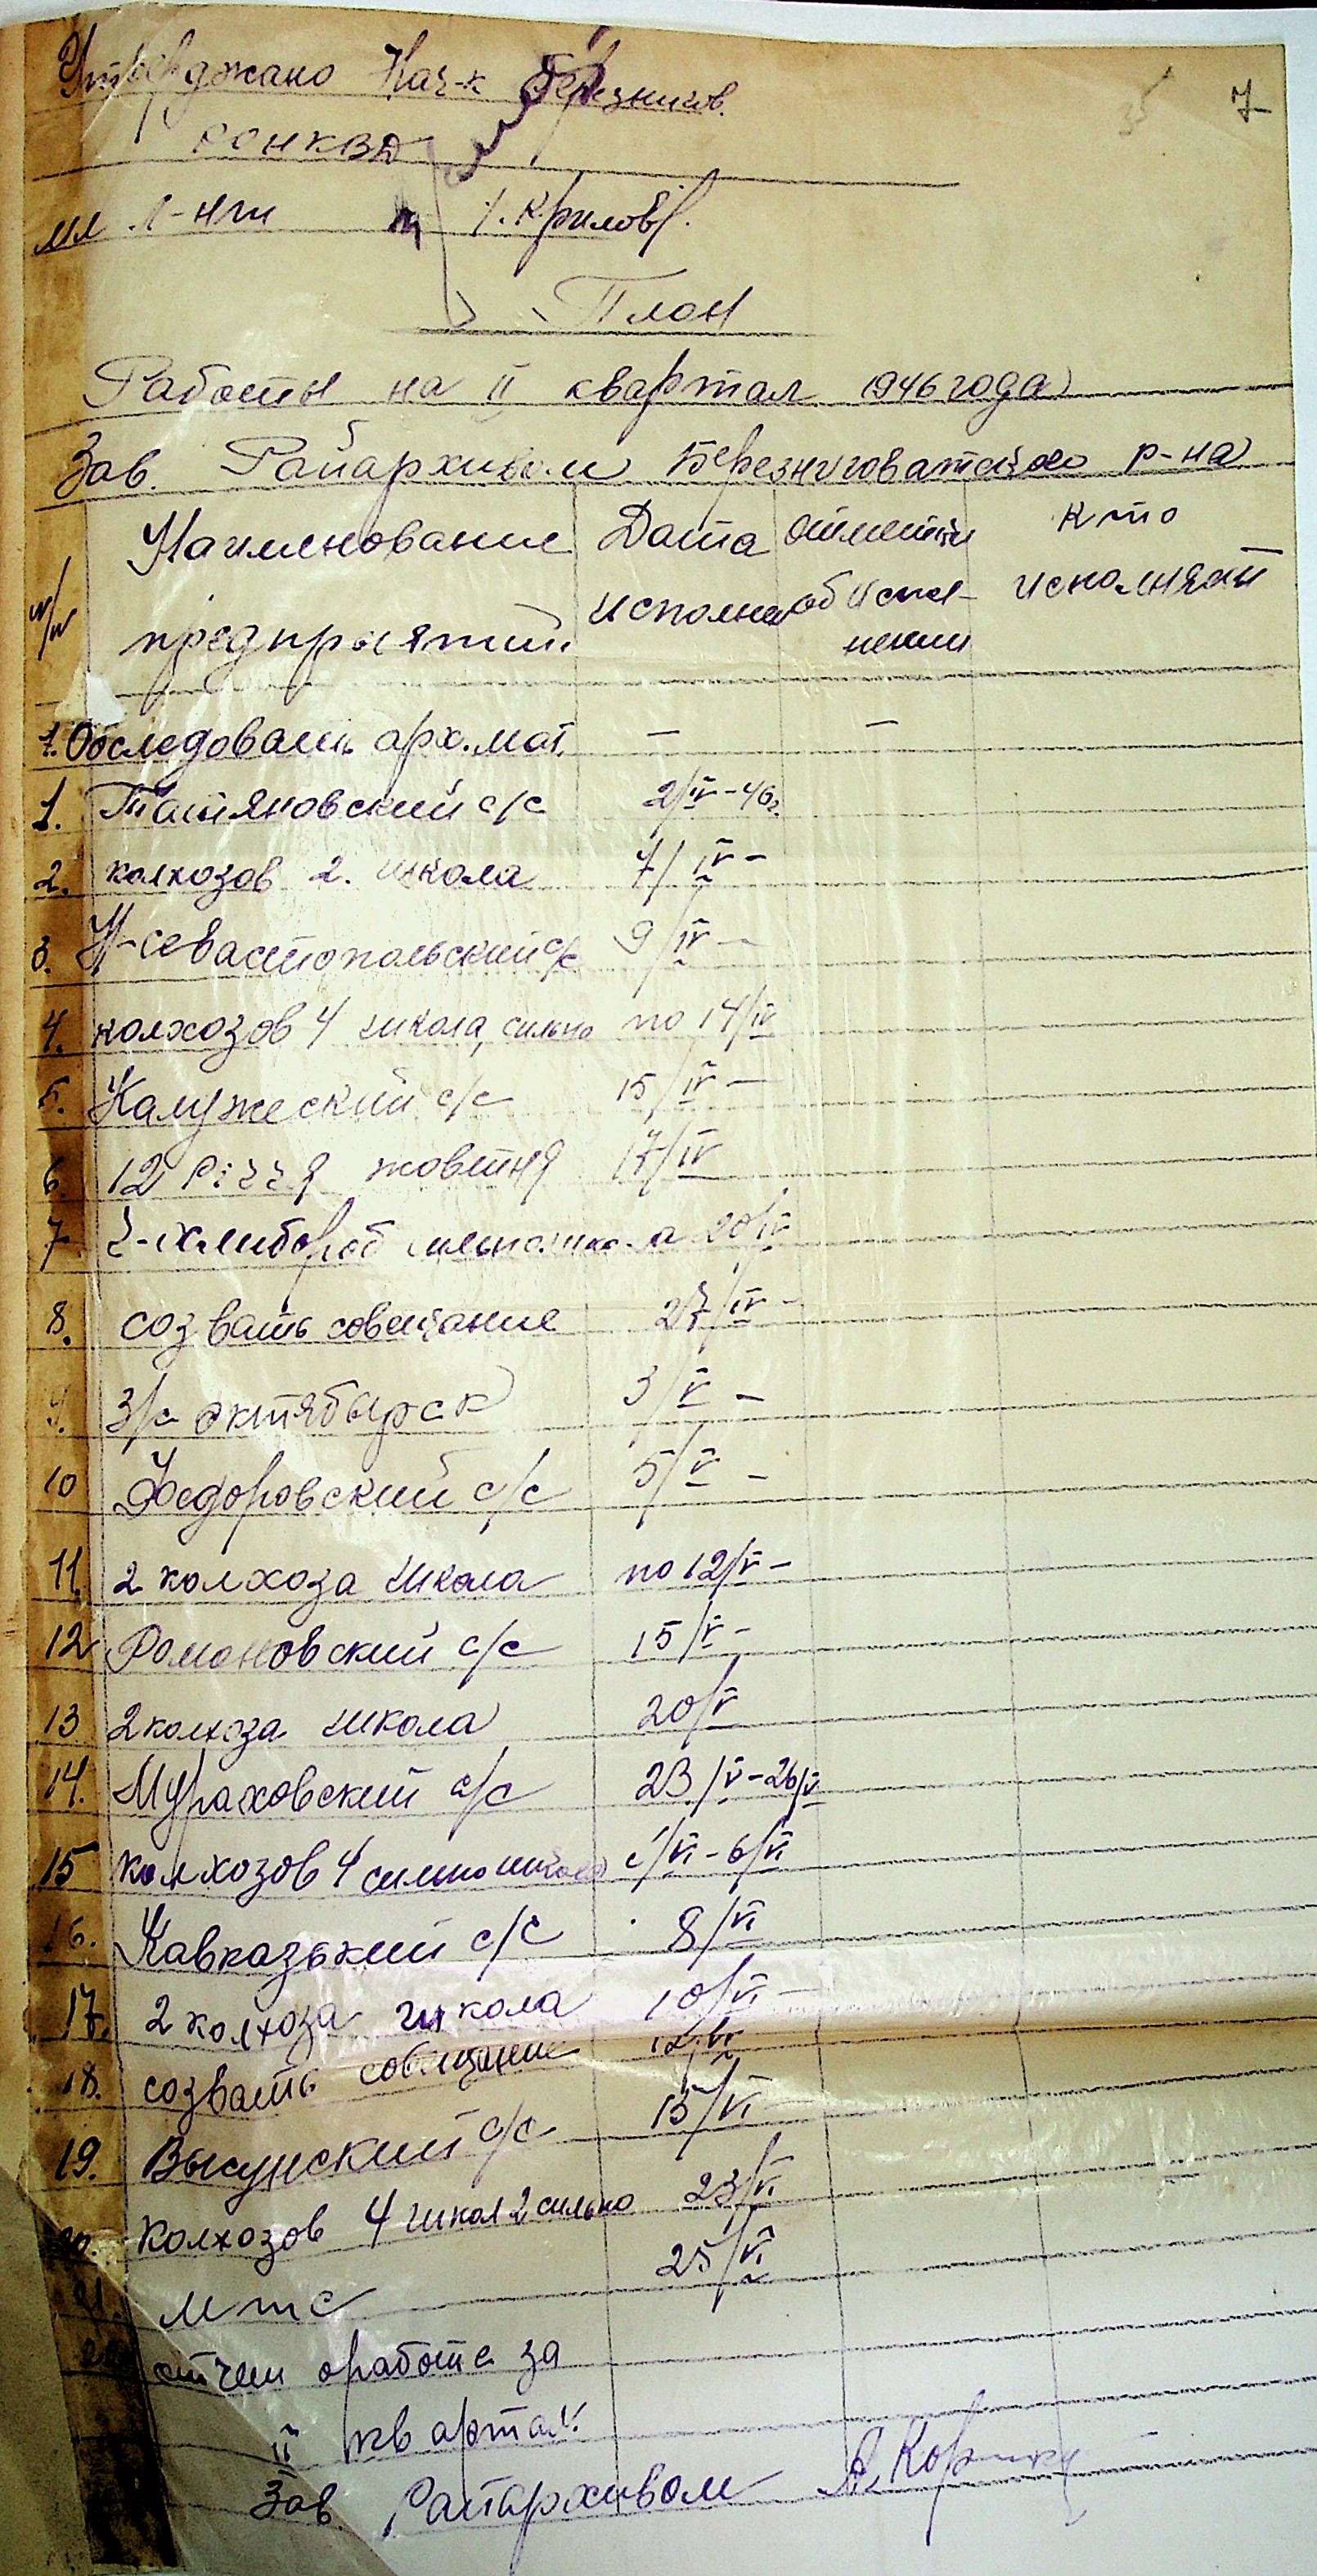 Утверджано Нач-к Березнигов.
РОНКВД
мл л-нт /. Крилов/.
7
План
Работы на II квартал 1946 года
Зав. Райархивом Березниговатского р-на
Наименование Дата отметки Кто
предприятий исполнен об испол- исполняет
нении
1. Обследовать арх. мат. — —
1. Татяновский с/с 2/IV-46г.
2. колхозов 2. школа 7/IV -
3. Н-севастопольский с/с 9/IV -
4. колхозов 4 школа, сильно по 14/IV
5. Калужеский с/с 15/IV -
6. 12 річчя жовтня 17/IV
7 Хлибороб 20/IV
8. созвать совещание 27/IV -
9. З/с октябырск 3/V -
10 Федоровский с/с 5/V -
11. 2 колхоза школа по 12/V -
12 Романовский с/с 15/V -
13 2 колхоза школа 20/V
14. Мураховский с/с 23/V-26/V
15 колхозов 4 сильно школа 1/VI - 6/VI
16. Кавказький с/с 8/VI
17. 2 колхоза школа 10/VI -
18. созвать совещание 12/VI
19. Высунский с/с 15/VI -
20. Колхозов 4 школ 2 сильно 23/VI
21. мтс 25/VI
22 отчет о работе за
II квартал.
Зав Райархивом